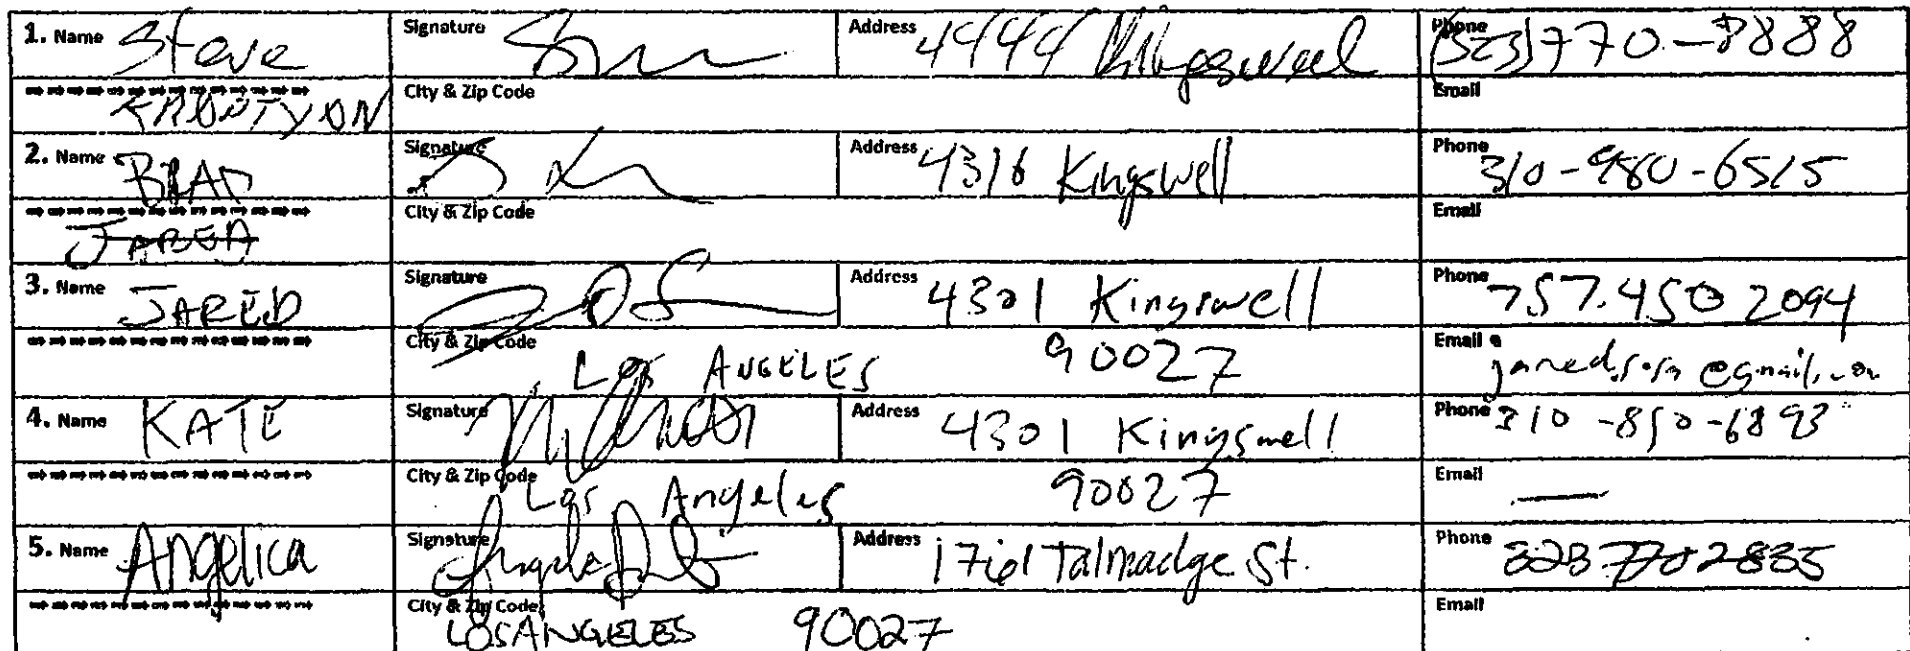 1. Name Steve Signature Address 4444 Phone (323)770-8888
City & Zip Code Email
2. Name BRAD Signature Address 4316 Kingswell Phone 310-980-6515
JARED City & Zip Code Email
3. Name JARED Signature Address 4301 Kingswell Phone 757.450 2094
City & Zip Code Los ANGELES 90027 Email
4. Name KATE Signature Address 4301 Kingswell Phone 310-850-6893
City & Zip Code Los Angeles 90027 Email —
5. Name Angelica Signature Address 1761 Talmadge St. Phone 323 770 2835
City & Zip Code LOS ANGELES 90027 Email